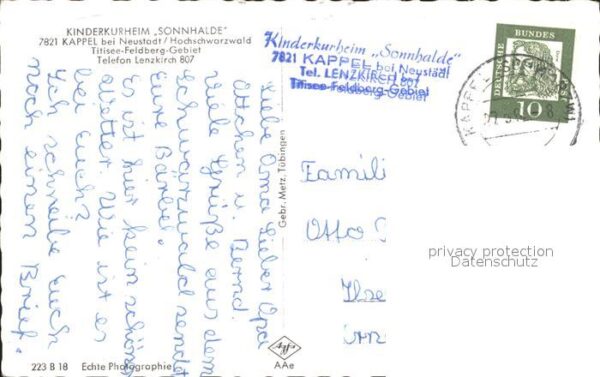 KINDERKURHEIM „SONNHALDE"
7821 KAPPEL bei Neustadt / Hochschwarzwald
Titisee-Feldberg-Gebiet
Telefon Lenzkirch 807
Kinderkurheim „Sonnhalde"
7821 KAPPEL bei Neustadt
Tel. LENZKIRCH 807
Titisee-Feldberg-Gebiet
DEUTSCHE BUNDESPOST
10
KAPPEL
Liebe Oma Lieber Opa
Ottchen u. Bernd.
Viele Grüße aus dem
Schwarzwald sendet
eure Bärbel.
Es ist hier kein schönes
Wetter. Wie ist es
bei euch?
Ich schreibe euch
noch einen Brief.
Gebr. Metz, Tübingen
Famili
Otto
Ilse
privacy protection
Datenschutz
223 B 18 Echte Photographie
Agfa
AAe